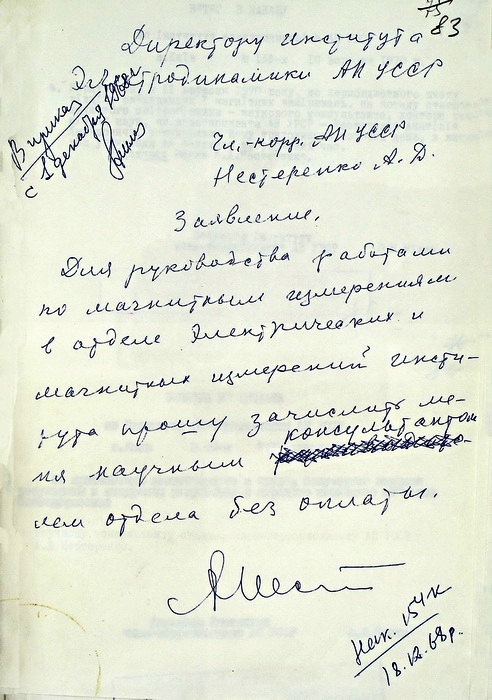 83
Директору института
Электродинамики АН УССР
В приказ
с 1 декабря 1968 г.
Чл.-корр. АН УССР
Нестеренко А. Д.
Заявление.
Для руководства работами
по магнитным измерениям
в отделе Электрических и
магнитных измерений инсти-
тута прошу зачислить ме-
ня научным консультантом
лем отдела без оплаты.
Нак. 154 к
18.12.68 р.